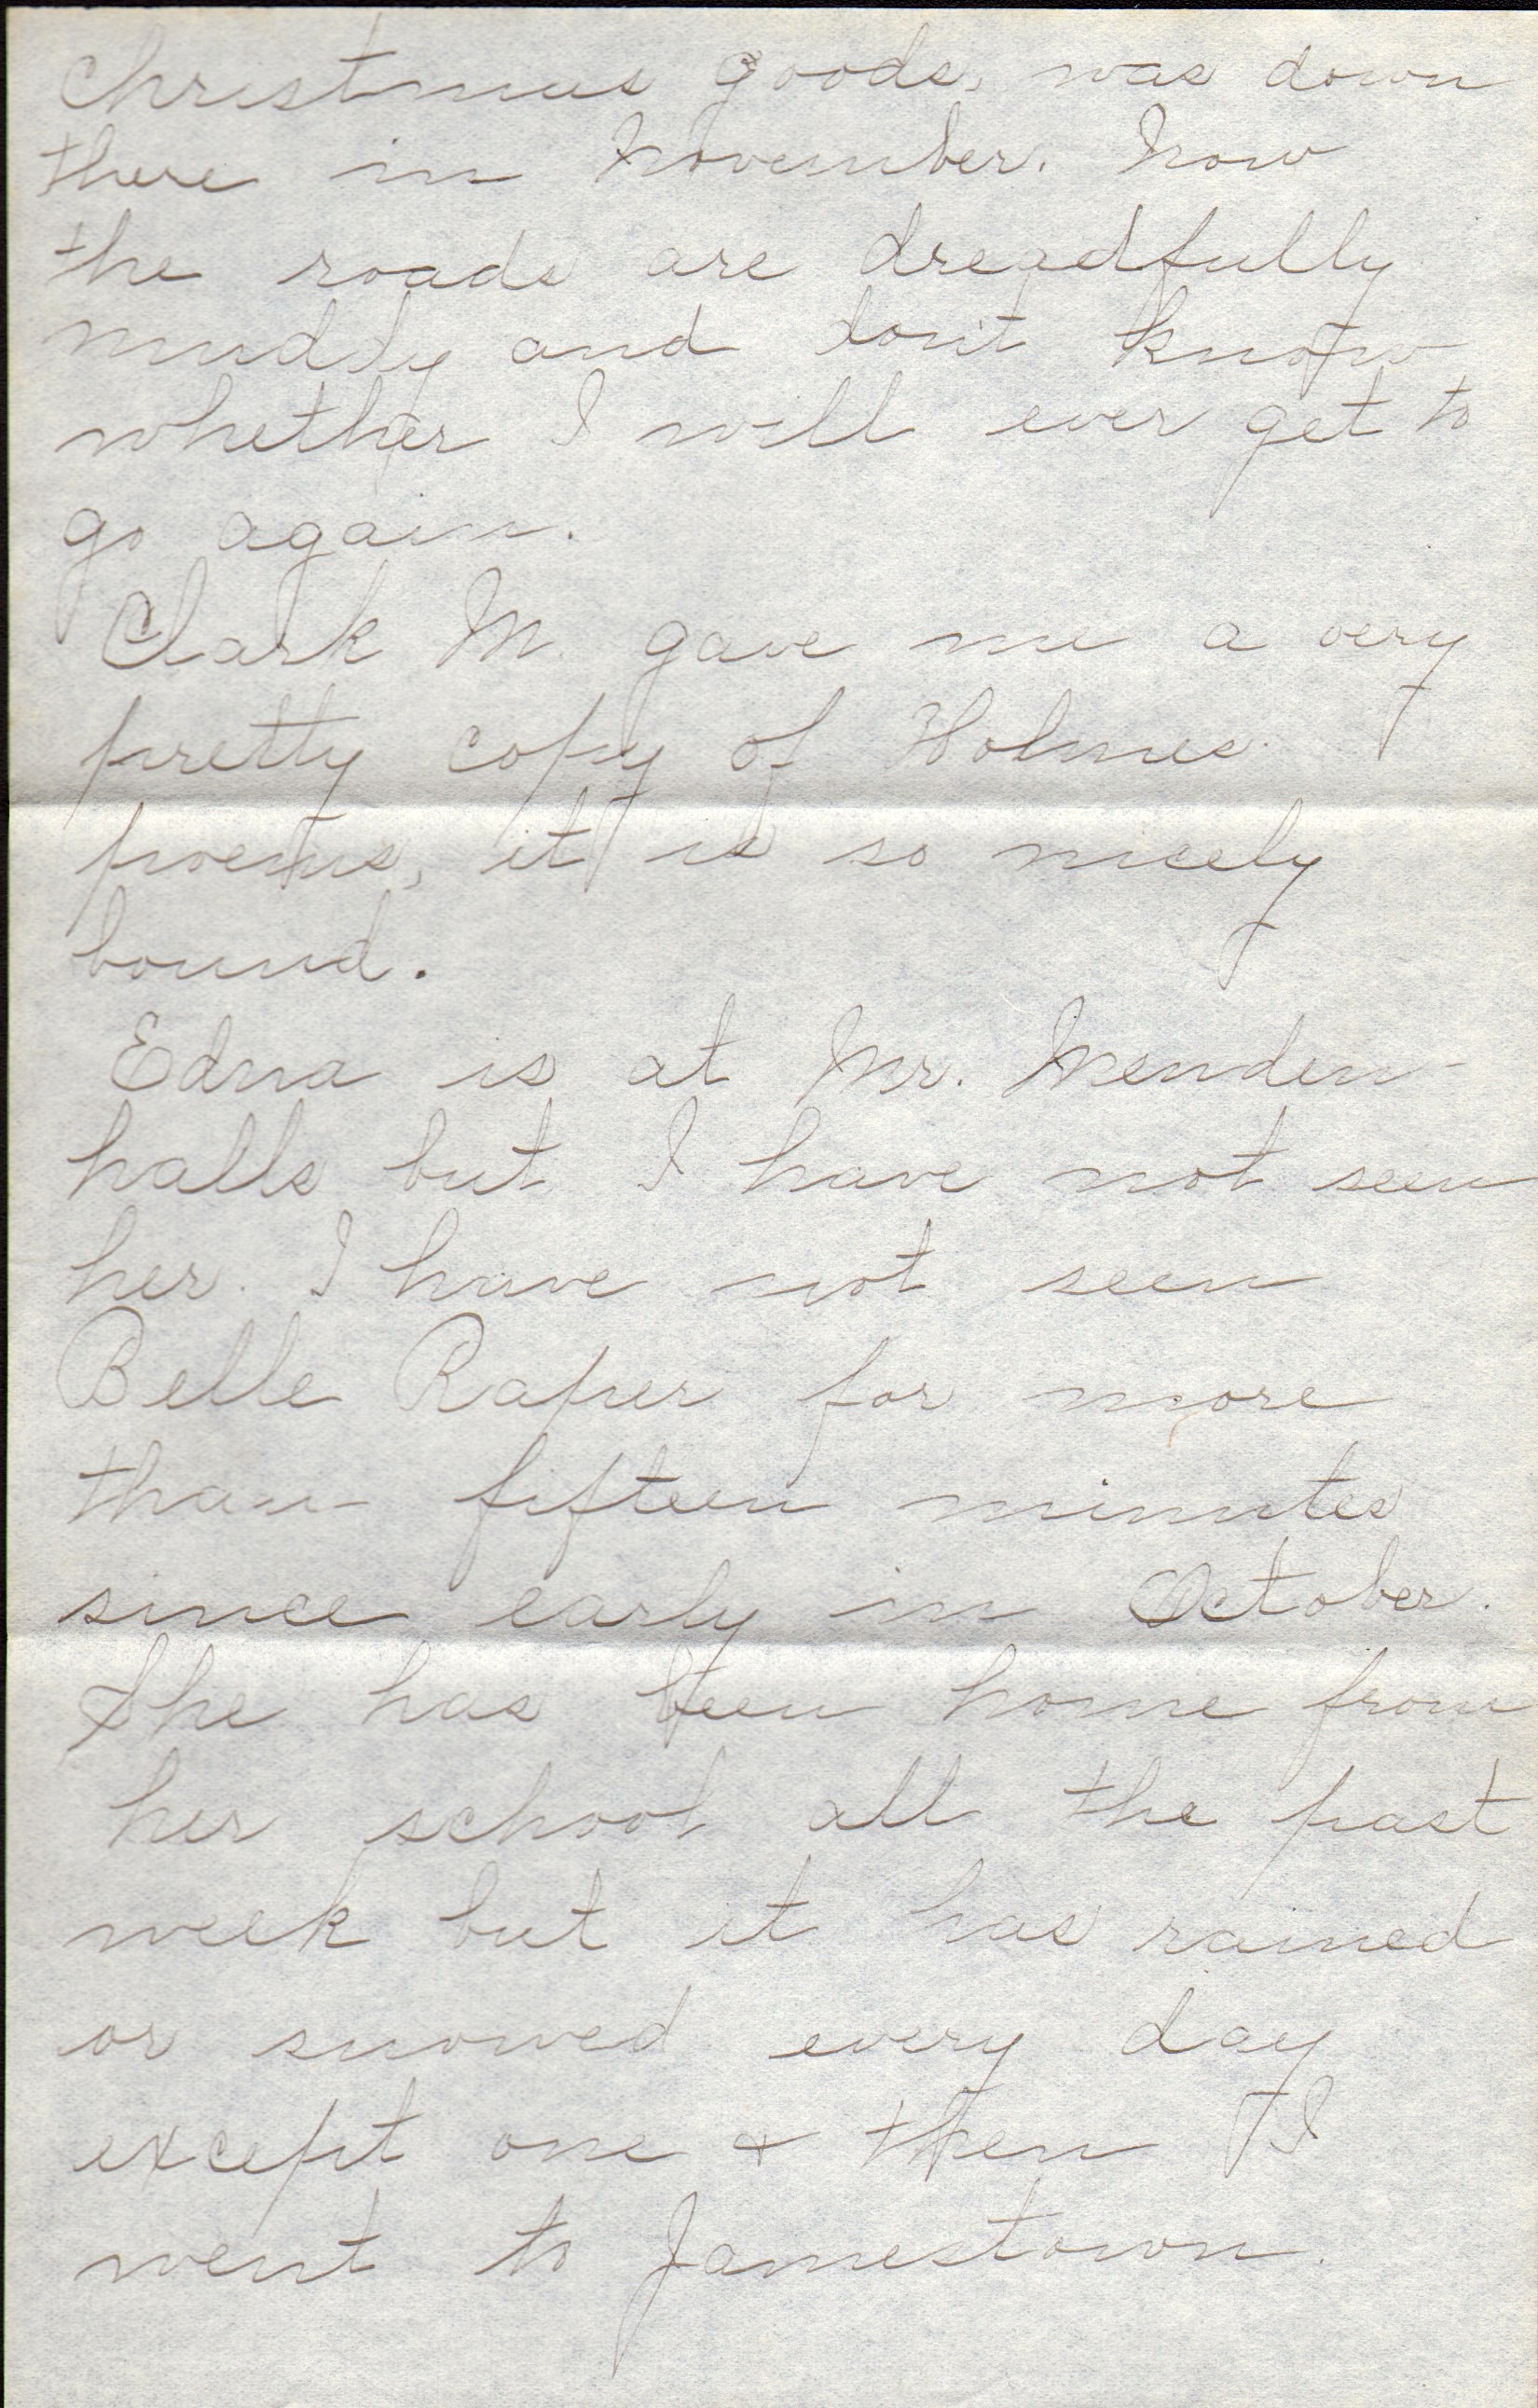 Christmas goods, was down
there in November. Now
the roads are dreadfully
muddy and don't know
whether I will ever get to
go again.
Clark M. gave me a very
pretty copy of Holmes
poems, it is so nicely
bound.
Edna is at Mr. Menden-
halls but I have not seen
her. I have not seen
Belle Raper for more
than fifteen minutes
since early in October.
She has been home from
her school all the past
week but it has rained
or snowed every day
except one & then I
went to Jamestown.